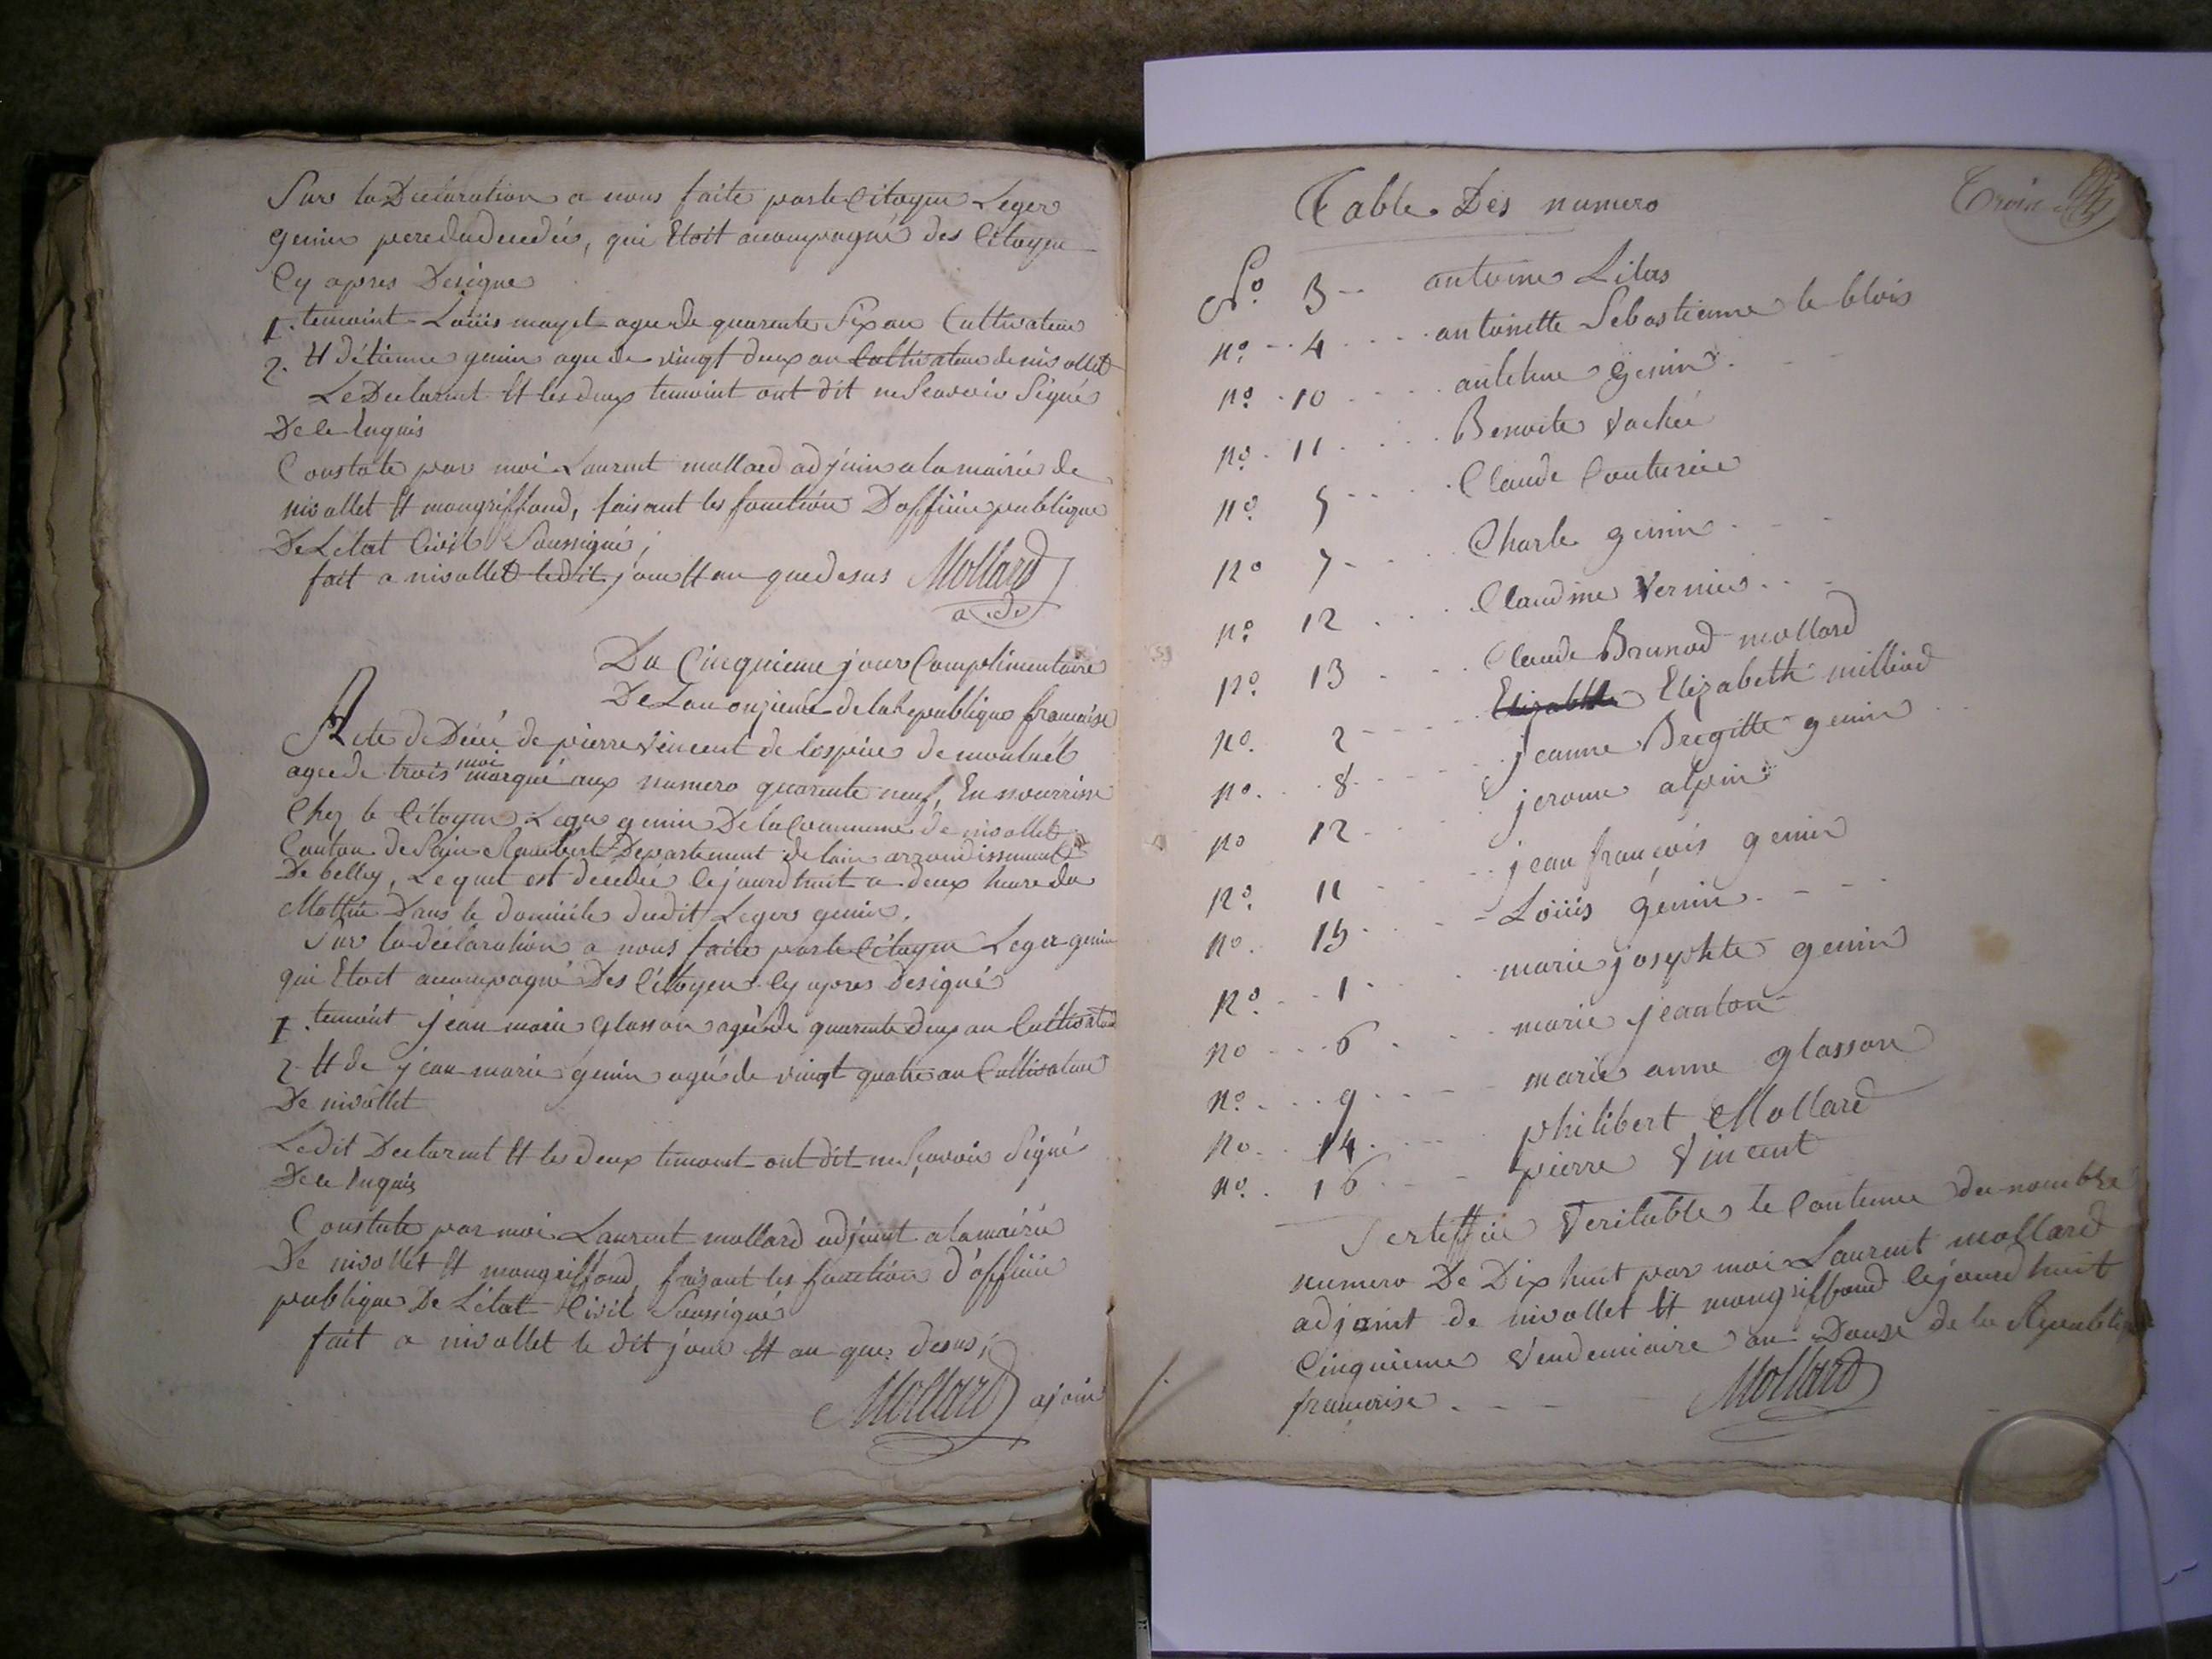 Sur la Declaration a nous faite par le Citoyen Leger
genin pere du decedés, qui Etoit acompagné des Citoyen
Cy apres Designe
1. temoint Loüis mayet agee de quarente Six an Cultivateur
2. Et détienne genin agee de vingt deux an Cultivateur de nivollet
Le Declarent Et les deux temoint ont dit ne Scavoir Signé
De ce Enquis
Constate par moi Laurent mollard adjoin a la mairie de
nivollet Et mongriffond, faisant les fonction D'officié publique
De Letat Civil Soussigné;
fait a nivollet le dit jour Et an que desus Mollard
Du Cinquieme jour Complimentaire
De Lan onzieme de la Republique francaise
Acte de Décé de pierre vincent de lospice de montuel
agee de trois moi marqué aux numero quarente neuf, En nourrisse
Chez le Citoyen Leger genin De la Commune de nivollet
Canton de Sain Rambert Departement de lain arrondissement
De belley, Lequel est decedée cejourdhuit a deux heure du
Mattin Dans le domicile dudit Leger genin.
Sur la declaration a nous faite par le Citoyen Leger genin
qui Etoit acompagné Des Citoyen Cy apres designé
1. temoint jean marie glasson agée de quarente deux an Cultivateur
2. Et de jean marie genin agée de vingt quatre an Cultivateur
De nivollet
Ledit Declarent Et les deux temoint ont dit ne Scavoir Signé
De ce Enquis
Constate par moi Laurent mollard adjoint a la mairie
De nivollet Et mongriffond, faisant les fonction d'officié
publique De Létat Civil Soussigné
fait a nivollet le dit jour Et an que desus;
Mollard ajoint
Table Des numero
No 3 antoine Lilas
no 4 antoinette Sebastienne le blois
no 10 antelme genin
no 11 Benoite vachée
no 5 Claude Couturie
no 7 Charle genin
no 12 Claudine vernier
no 13 Claude Brunod mollard
no 2 Elizabeth milliod
no 8 jeanne Bregitte genin
no 12 jerome alpin
no 11 jean françois genin
no 15 Loüis genin
no 1 marie josephte genin
no 6 marie jeanton
no 9 marie anne glasson
no 14 philibert Mollard
no 16 pierre vincent
Certiffie veritable le Contenue du nombre
numero De Dix huit par moi Laurent mollard
adjoint de nivollet Et mongriffond cejourdhuit
Cinquieme vendemiaire an Douse de la Republique
francaise
Mollard